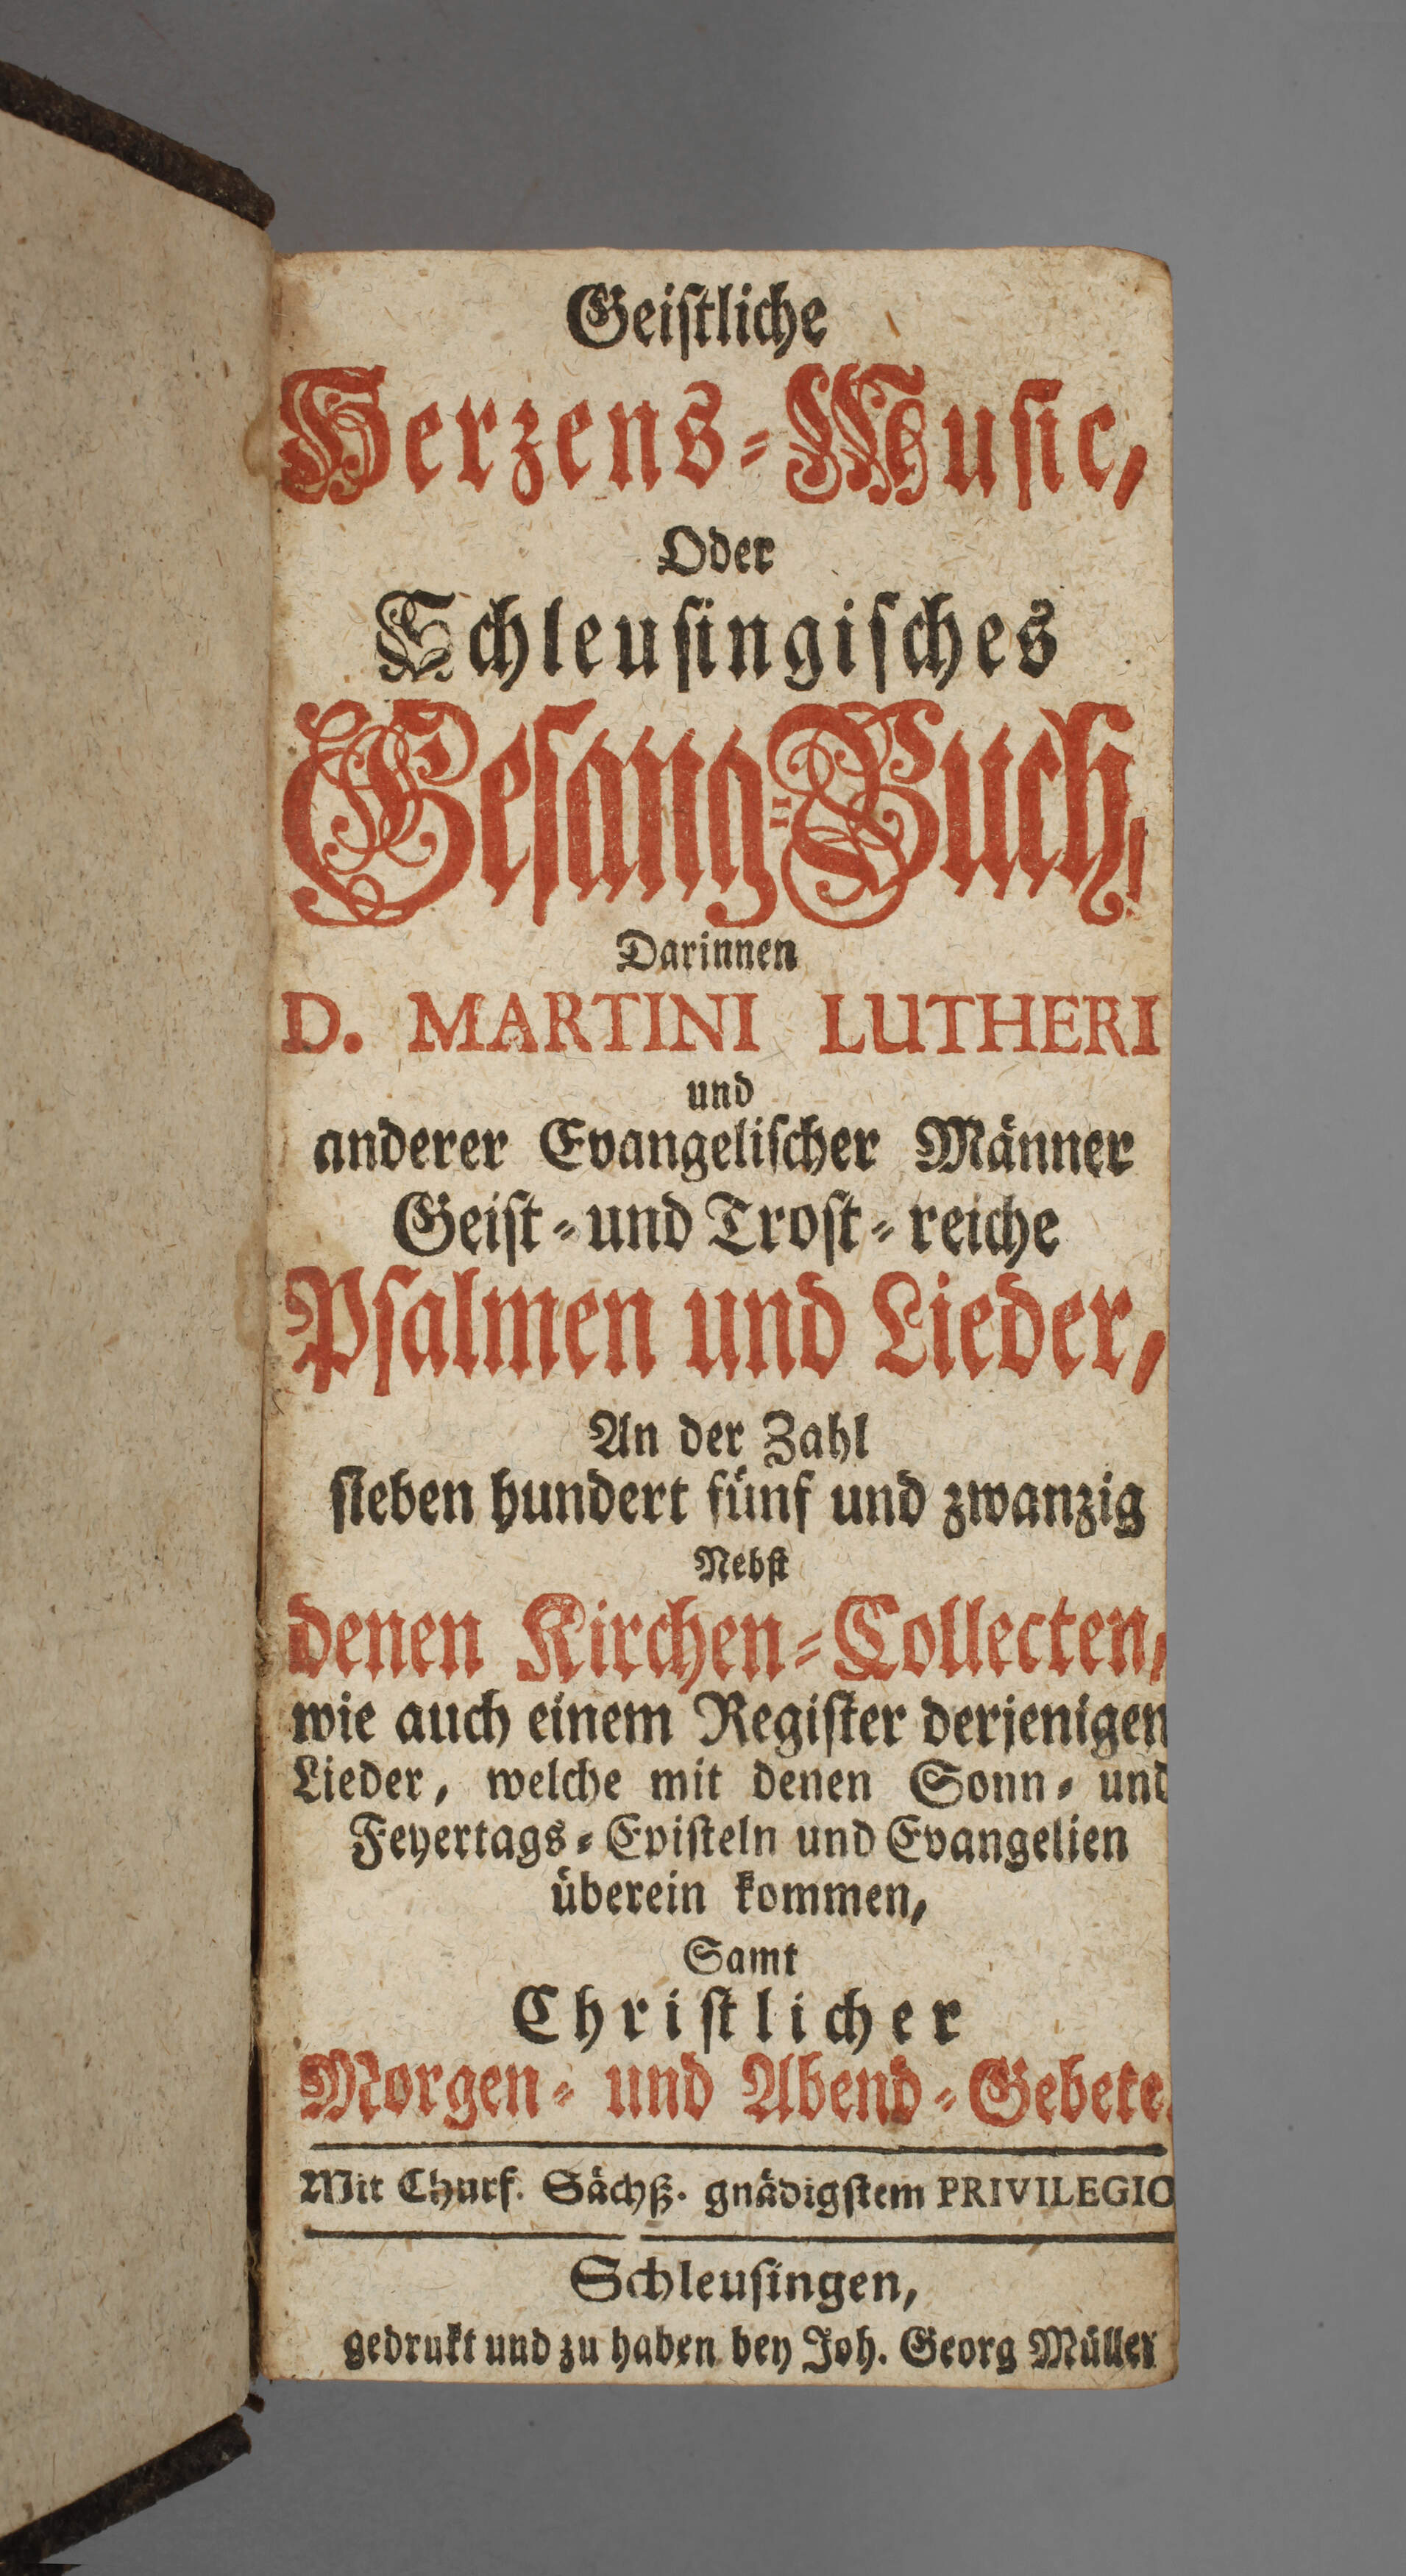 Geistliche
Herzens-Music,
Oder
Schleusingisches
Gesang-Buch,
Darinnen
D. MARTINI LUTHERI
und
anderer Evangelischer Männer
Geist- und Trost-reiche
Psalmen und Lieder,
An der Zahl
sieben hundert fünf und zwanzig
Nebst
denen Kirchen-Collecten,
wie auch einem Register derjenigen
Lieder, welche mit denen Sonn- und
Feyertags-Episteln und Evangelien
überein kommen,
Samt
Christlicher
Morgen- und Abend-Gebete.
Mit Churf. Sächß. gnädigstem PRIVILEGIO
Schleusingen,
gedrukt und zu haben bey Joh. Georg Müller